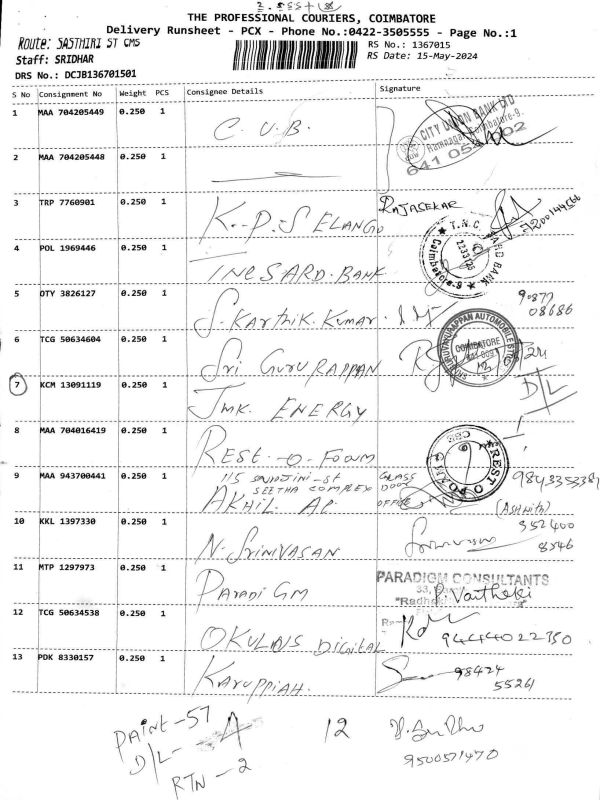 2.555+18
THE PROFESSIONAL COURIERS, COIMBATORE
Delivery Runsheet - PCX - Phone No.:0422-3505555 - Page No.:1
Route: SASTHIRI ST CMS
RS No.: 1367015
Staff: SRIDHAR
RS Date: 15-May-2024
DRS No.: DCJB136701501
S No Consignment No Weight PCS Consignee Details Signature
1 MAA 704205449 0.250 1 C.U.B. CITY UNION BANK LTD
Ramnagar, Coimbatore-9.
2 MAA 704205448 0.250 1
3 TRP 7760901 0.250 1 K.P.S ELANGO RAJASEKAR
7200144566
4 POL 1969446 0.250 1 TNCSARD.BANK T.N.C. SARD BANK
Coimbatore-9
5 OTY 3826127 0.250 1 S.Karthik.Kumar.
90877
08686
6 TCG 50634604 0.250 1 Sri GURU RAPPAN
COIMBATORE
641 009
7 KCM 13091119 0.250 1 JMK. ENERGY D/L
8 MAA 704016419 0.250 1 REST-O-Foam REST O FOAM
9 MAA 943700441 0.250 1 115
SEETHA COMPLEX
AKHIL AP
GLASS
DOOR
OFFICE
9843353381
(Ashwith)
10 KKL 1397330 0.250 1 N.SRINIVASAN Srinivasan
352400
8546
11 MTP 1297973 0.250 1 ParadiGM PARADIGM CONSULTANTS
33,
P. Vaitheki
12 TCG 50634538 0.250 1 OKULNS DIGITAL
9444022350
13 PDK 8330157 0.250 1 KARUPPIAH.
98424
55261
PAINT-57
D/L- A 12
RTN-2
9500571470